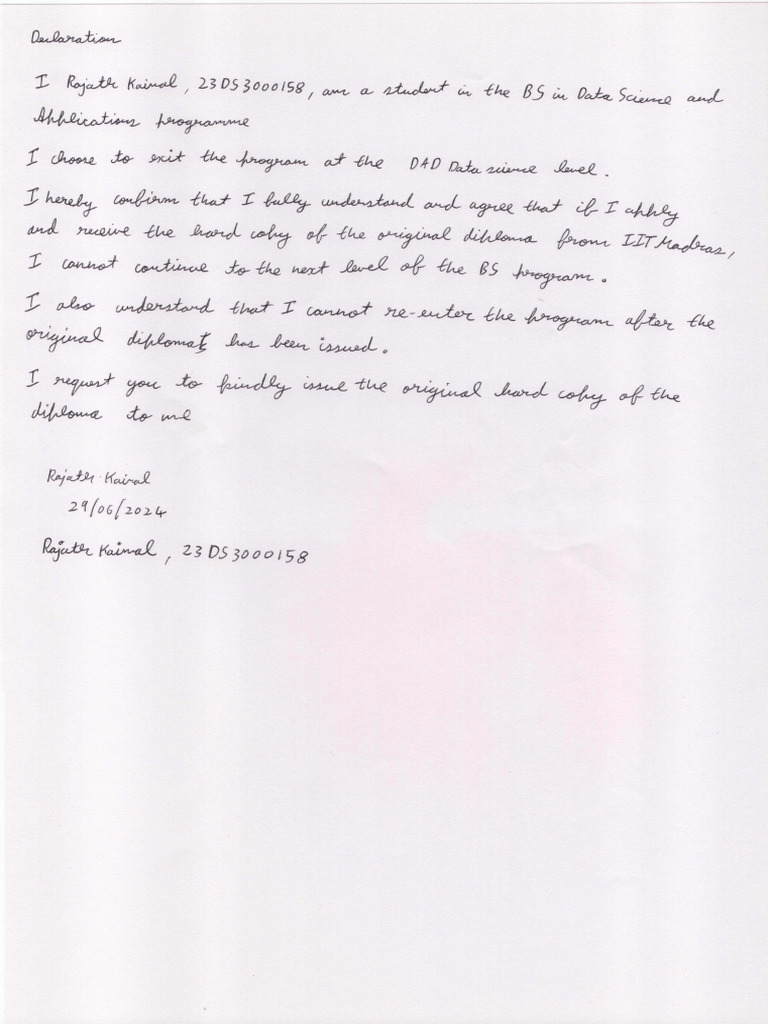 Declaration
I Rajath Kaimal, 23DS3000158, am a student in the BS in Data Science and
Applications programme
I choose to exit the program at the DAD Data science level.
I hereby confirm that I fully understand and agree that if I apply
and receive the hard copy of the original diploma from IIT Madras,
I cannot continue to the next level of the BS program.
I also understand that I cannot re-enter the program after the
original diploma has been issued.
I request you to kindly issue the original hard copy of the
diploma to me
Rajath Kaimal
29/06/2024
Rajath Kaimal, 23DS3000158